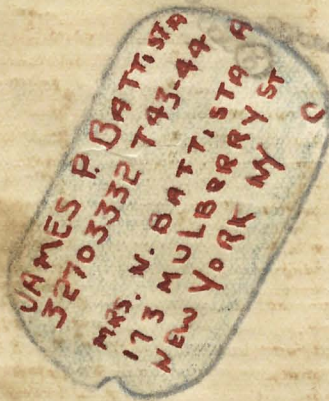 JAMES P. BATTISTA
32703332 T43-44 A
MRS. N. BATTISTA
173 MULBERRY ST
NEW YORK NY C